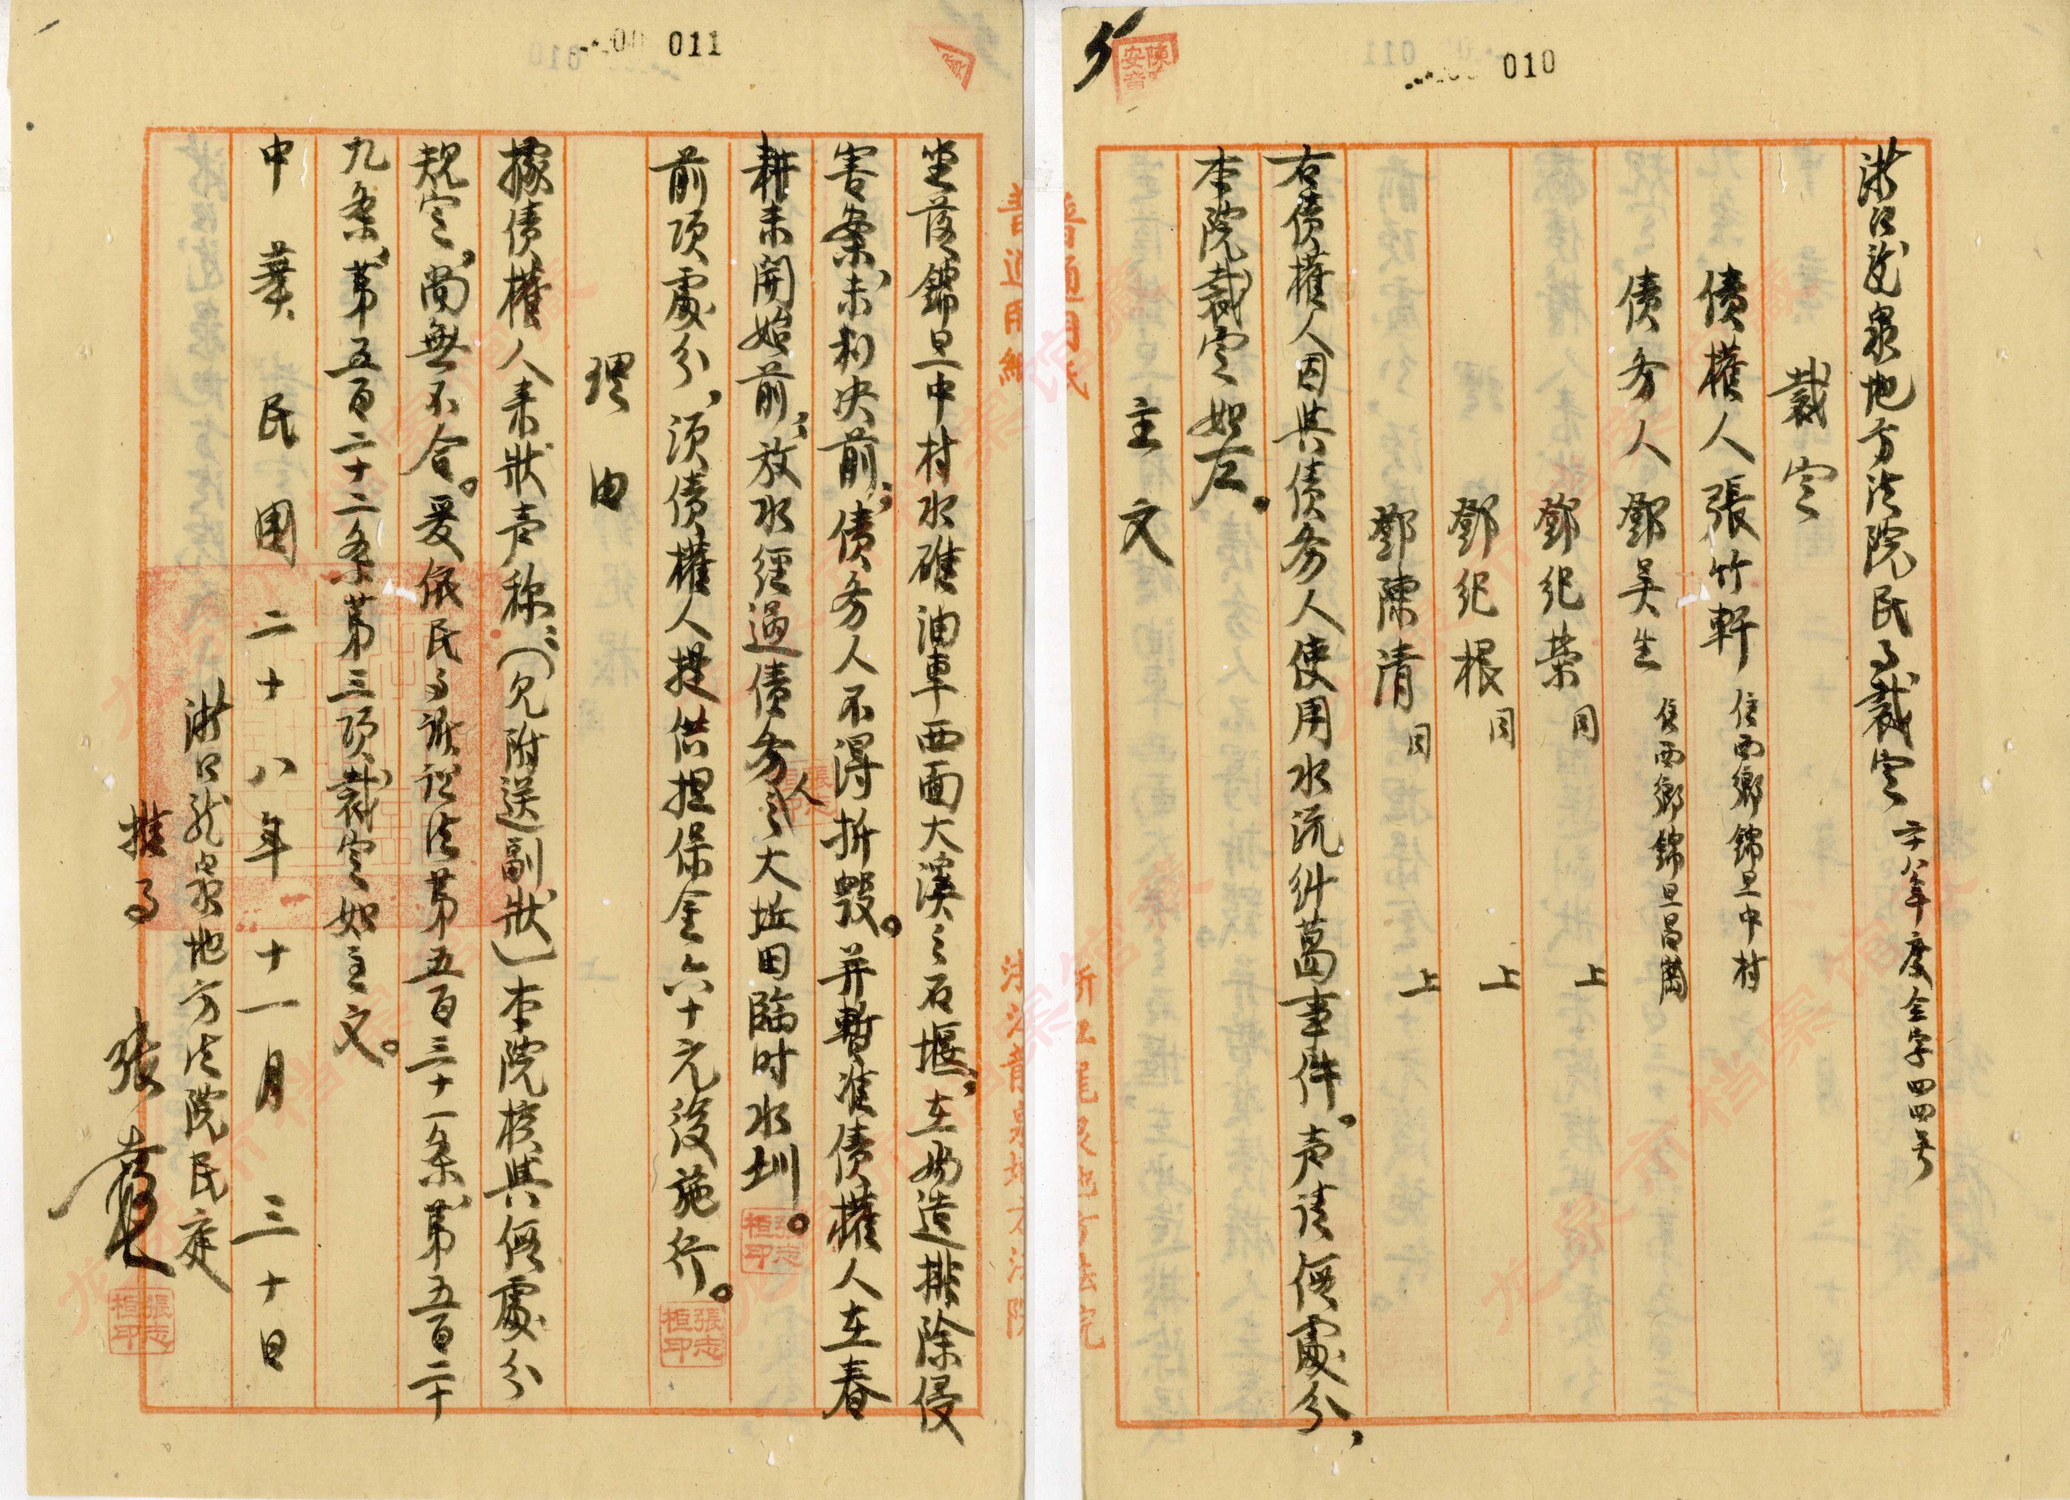 010
浙江龍泉地方法院民事裁定 二十八年度全字四四号
裁定
債權人張竹軒 住西鄉錦旦中村
債務人鄧吴生 住西鄉錦旦昌崗
鄧纪荣 同 上
鄧纪根 同 上
鄧陳清 同 上
右債權人因與債务人使用水流纠葛事件。声请假處分，
本院裁定如左。
主文
011
坐落錦旦中村水碓油車西面大溪之石堰，在妨造排除侵
害案未判决前，債务人不得拆毁。并暫准債權人在春
耕未開始前，放水經過債务人之大坵田臨时水圳。
前項處分，须債權人提供担保金六十元後施行。
理由
據債權人来狀声称，（见附送副狀）本院核與假處分
规定，尚無不合。爰依民事诉讼法第五百三十一条，第五百二十
九条，第五百二十二条第三項，裁定如主文。
中華民國二十八年十一月三十日
浙江龍泉地方法院民庭
推事 張
張志桓印
普通用紙
浙江龍泉地方法院